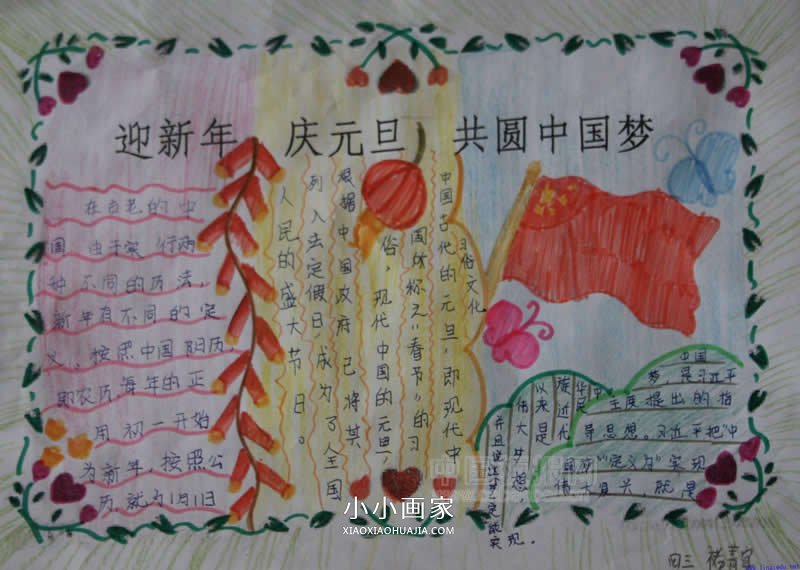 迎新年 庆元旦 共圆中国梦
在古老的中
国,由于实行两
种不同的历法,
新年有不同的定
义。按照中国阳历,
即农历,每年的正
月初一开始
为新年,按照公
历,就为1月1日
习俗文化
中国古代的元旦,即现代中
国所称之"春节"的习
俗,现代中国的元旦,
根据中国政府已将其
列入法定假日,成为了全国
人民的盛大节日。
中国
梦,是习近平
主席提出的指
导思想。习近平把"中
国梦"定义为"实现
伟大复兴就是
中
华民
族近代
以来是
伟大梦想
并且说这梦一定能
实现。
小小画家
XIAOXIAOHUAJIA.COM
四三